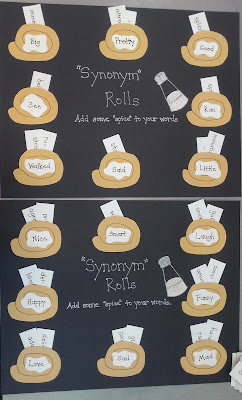 Big
Pretty
Good
"Synonym"
See
Rolls
Ran
Add some "spice" to your words
Walked
Said
Little
Nice
Smart
Laugh
"Synonym"
Rolls
Happy
Funny
Add some "spice" to your words.
Love
Sad
Mad